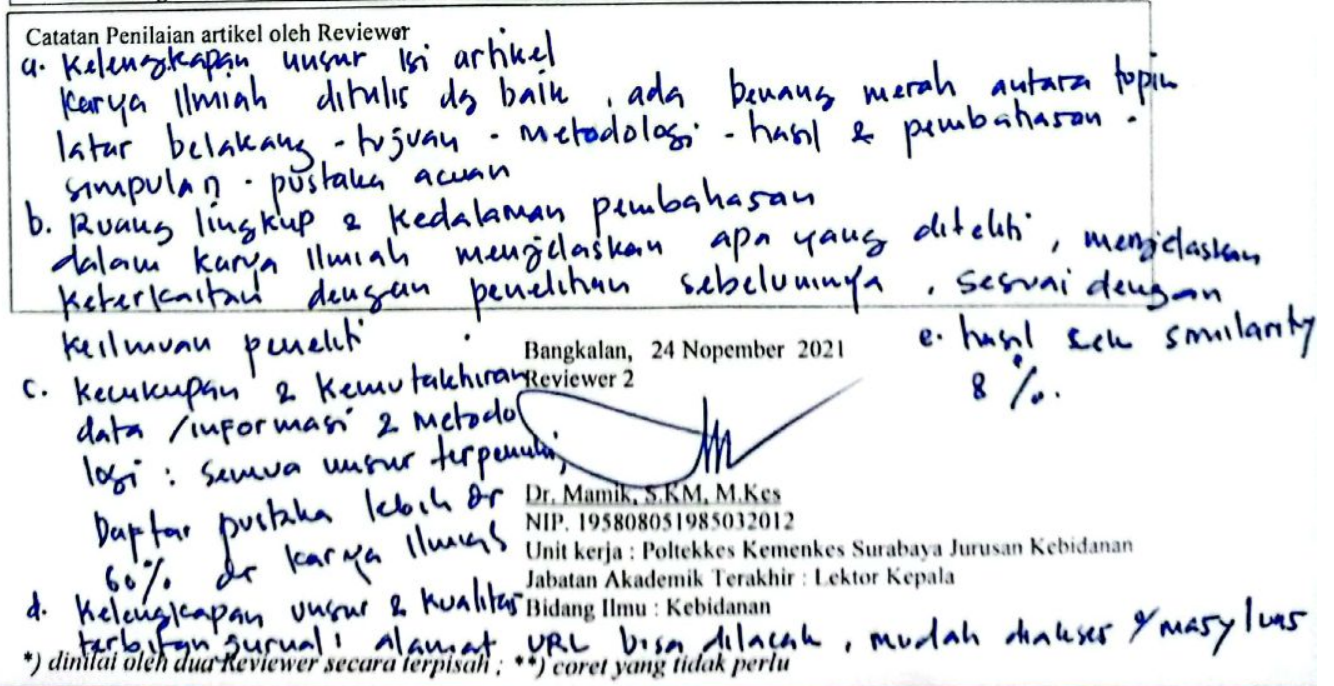 Catatan Penilaian artikel oleh Reviewer
a. Kelengkapan unsur isi artikel
Karya Ilmiah ditulis dg baik, ada benang merah antara topik
latar belakang - tujuan - metodologi - hasil & pembahasan -
simpulan - pustaka acuan
b. Ruang lingkup & kedalaman pembahasan
dalam karya Ilmiah menjelaskan apa yang diteliti, menjelaskan
keterkaitan dengan penelitian sebelumnya, sesuai dengan
keilmuan peneliti.
c. Kecukupan & Kemutakhiran
data /informasi & metodo
logi : semua unsur terpenuhi,
Daftar pustaka lebih dr
60% dr karya Ilmiah
d. Kelengkapan unsur & kualitas
terbitan jurnal: alamat URL bisa dilacak, mudah diakses masy luas
e. hasil cek similarity
8 %.
Bangkalan, 24 Nopember 2021
Reviewer 2
Dr. Mamik, S.KM, M.Kes
NIP. 195808051985032012
Unit kerja : Poltekkes Kemenkes Surabaya Jurusan Kebidanan
Jabatan Akademik Terakhir : Lektor Kepala
Bidang Ilmu : Kebidanan
*) dinilai oleh dua Reviewer secara terpisah ; **) coret yang tidak perlu